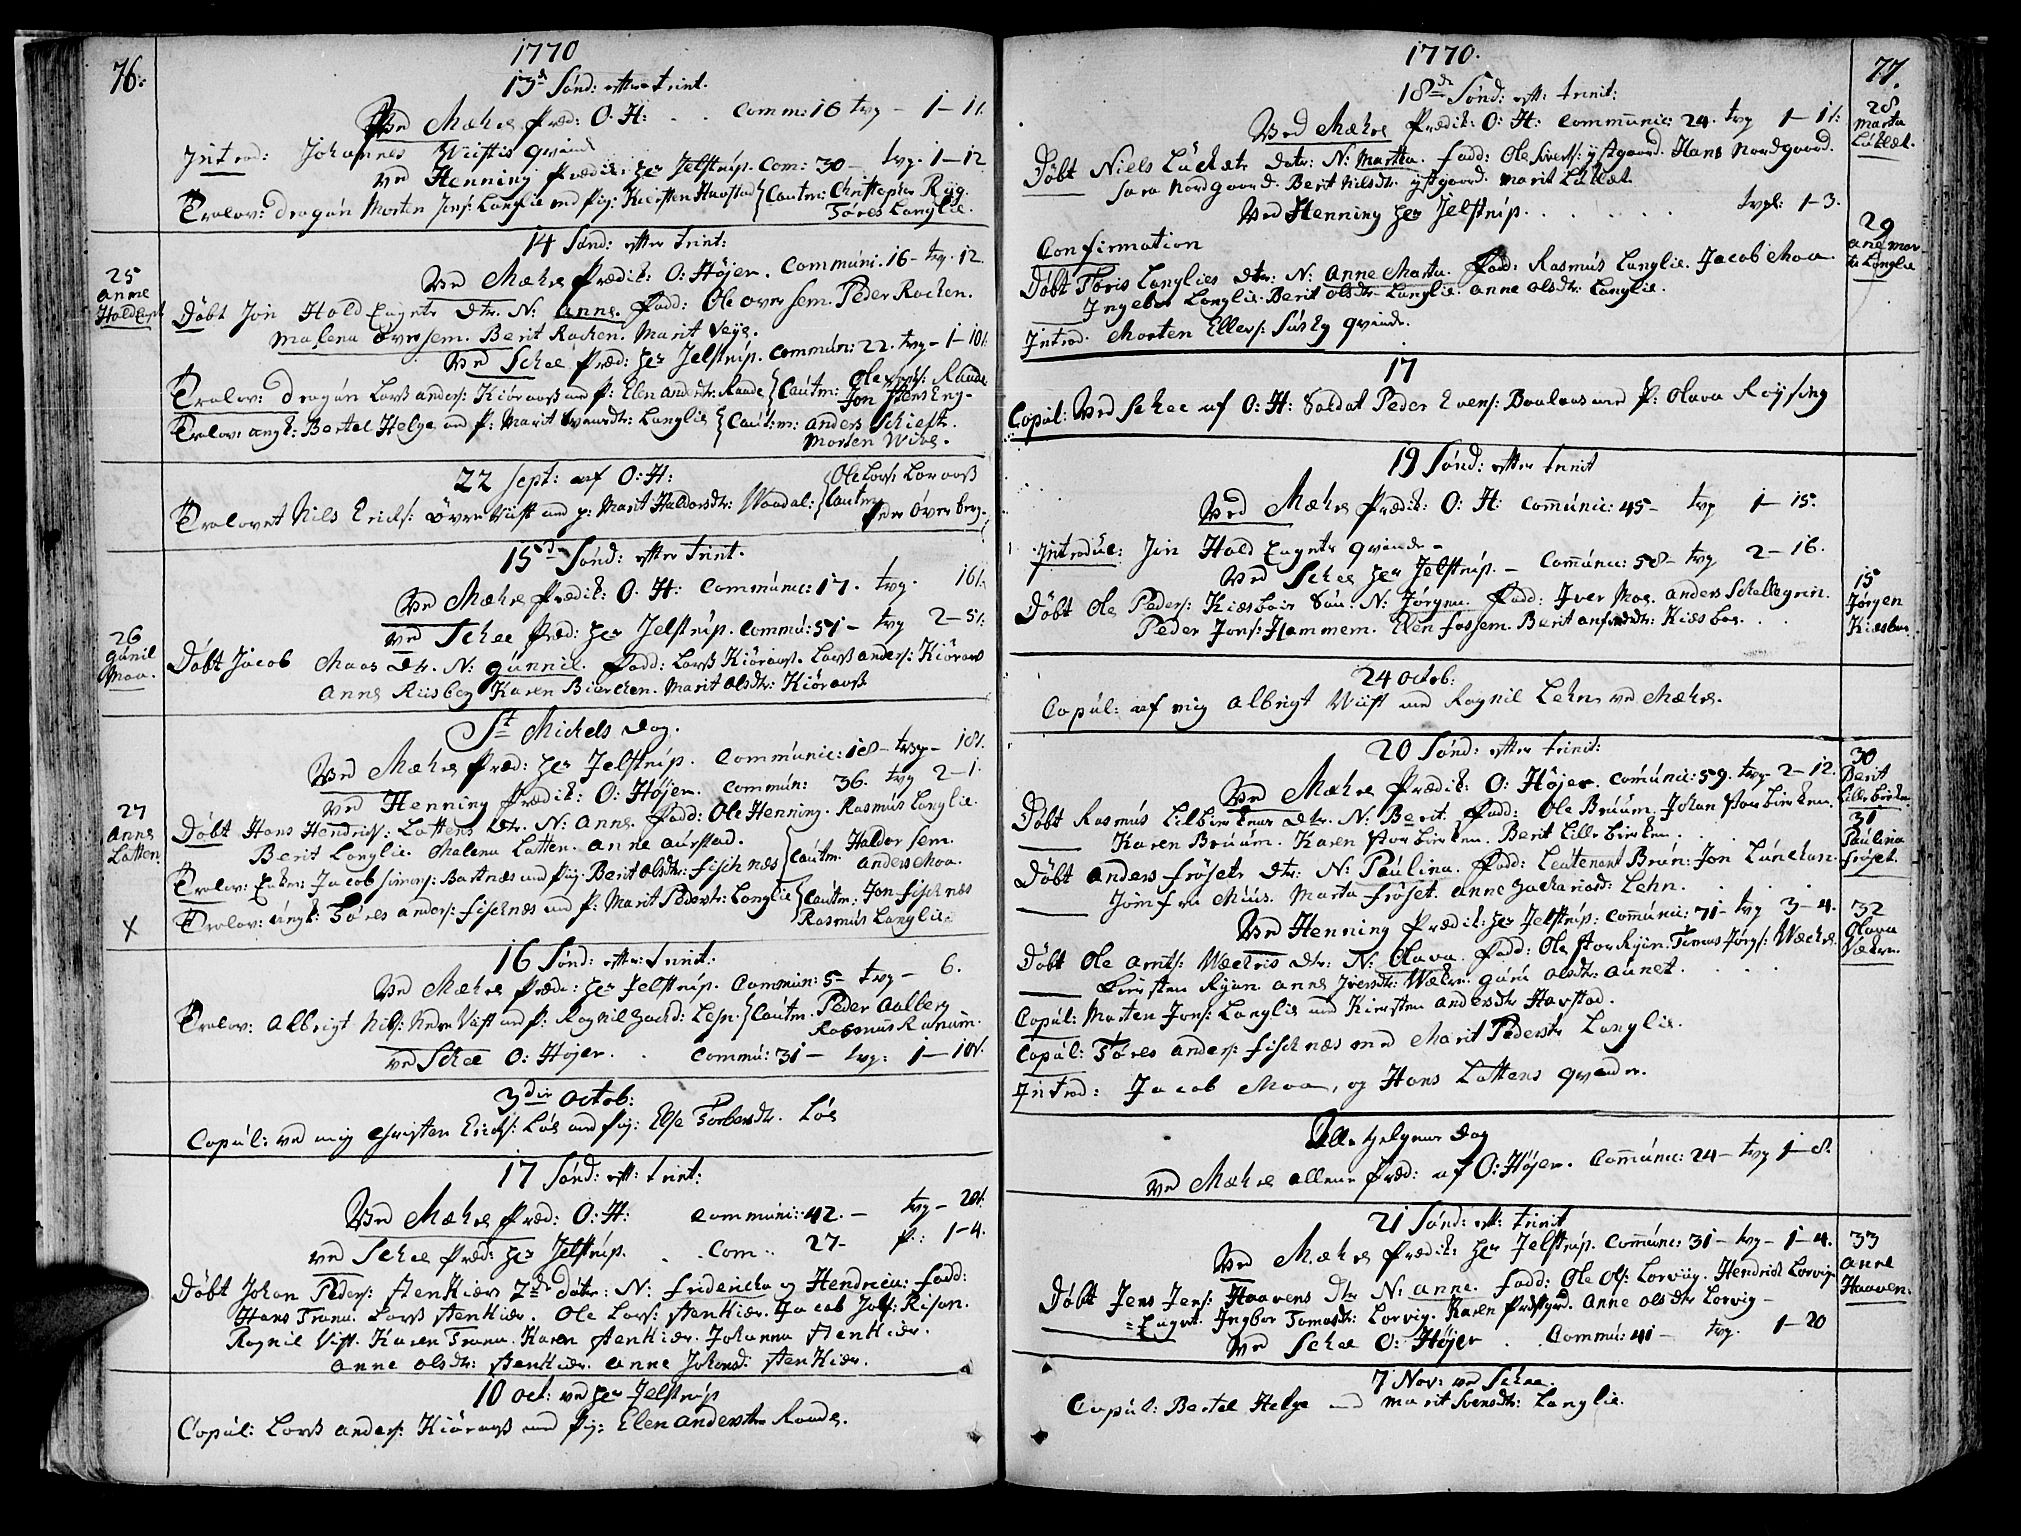 76.
1770
13de Sønd: efter trinit.
Ved Mæhre Præd: O: H: . . Comm: 16 tvg - 1 - 1/.
Introd: Johannes Wüstis qvinde
ved Henning Prædik: Her Jelstrúp. Com: 30 - tvg. 1 - 12
Trolov: dragún Morten Jons: Langlie med Pig: Kirsten Havstad { Cautm: Christopher Ryg.
Tøres Langlie.
14 Sønd: efter Trinit:
Ved Mæhre Prædik: O: Højer. Commúni. 16 - tvg. 12
25
Anne
Hald Eignt
Døbt Jon Hald Eignets dtr. N: Anne. Fadd: Ole Oversem. Peder Rachen.
Malena Oversem. Berit Rachen. Marit Veje.
Ved Schee Præd: Her Jelstrúp. Commún: 22. tvg - 1 - 10/.
Trolov: dragún Lars Anders: Kiøraas med P: Elen Andersdtr: Raade { Cautm: Ole Raade
Jon Steens Eng-
Trolov: ungk: Bertel Helge med P: Marit Svensdtr: Langlie { Cautm: Anders Schieft.
Morten Wibe.
22 Sept: af O: H:
Trolovet Nils Erichs: Øvre Vüst med P: Marit Haldorsdtr: Waadal: { Cautm Ole Lars: Laraas
Peder Overberg.
15de Sønd: efter Trinit.
Ved Mæhre Prædik: O: H: Commúnic: 17. tvg. 16/.
ved Schee Præd: Her Jelstrúp. Commú: 51 - tvg 2 - 5/.
26
Gúnil
Moa.
Døbt Jacob Moas Dtr. N: Gúnnil. Fadd: Lars Kiøraas. Lars Anders: Kiøraas
Anne Riisberg Karen Biørchen. Marit Olsdtr: Kiøraas
St Michels Dag.
Ved Mæhre Præd: Her Jelstrúp. Commúnic: 18 - tvg - 18/.
ved Henning Prædik: O: Højer. Commún: 36. tvg 2 - 1.
27
Anne
Latten
Døbt Hans Hendrichs: Lattens Dtr. N: Anne. Fadd: Ole Henning. Rasmús Langlie.
Berit Langlie. Malena Latten. Anne Aúrstad.
Trolov: Enkem: Jacob Simons: Bartnæs med Pig: Berit Olsdtr: Fischnæs { Cautm. Haldor Sem.
Anders Moa.
X
Trolov: úngk: Tøres Anders: Fischnæs med P: Marit Pedersdtr: Langlie { Cautm: Jon Fischnæs
Rasmús Langlie.
16 Sønd: efter Trinit:
Ved Mæhre Præd: Her Jelstrúp. Commún: 5 - tvg - 6.
Trolov: Albrigt Nils: Nedre Vüst med P: Ragnil Zachd: Lehn { Cautm. Peder Aalberg
Rasmús Ranúm.
ved Schee O: Højer. . Commú: 31 - tvg: 1 - 10/.
3die Octob:
Copúl: ved mig Christen Erichs: Løe med Pig: Else Torbersdtr. Løe
17 Sønd: eft: trinit:
Ved Mæhre Præd: O: H: Commúni: 42. - tvg - 20/.
ved Schee Præd: Her Jelstrúp. . . Com: 27 - P: 1 - 4.
Døbt Johan Peders: Stenkiær 2de døtr: N: Fridericha og Hendrica: Fadd:
Hans Trana. Lars Stenkiær. Ole Lars: Stenkiær. Jacob Jons: Risan.
Ragnil Vist. Karen Trana. Karen Stenkiær. Johanna Stenkiær.
Anne Olsdtr: Stenkiær. Anne Johansd: Stenkiær.
10 Oct: ved Her Jelstrúp
Copúl: Lars Anders: Kiøraas med Pig: Elen Andersdtr Raade.
1770.
77.
18de Sønd: eft: trinit:
Ved Mæhre Prædik: O: H: Commúnic: 24. tvg 1 - 1/:
28
Marta
Lúctæt.
Døbt Niels Lúctæts Datr: N: Martha. Fadd: Ole Siverts: Ystgaard. Hans Nordgaard.
Sara Nordgaard. Berit Nilsdtr: Ystgaard. Marit Lúctæt
Ved Henning Her Jelstrúp. . . . . . . tvgl: 1 - 3.
Confirmation
29
Ane Mar
ta Langlie
Døbt Tøris Langlies dtr: N: Anne Marta. Fadd: Rasmús Langlie. Jacob Moa.
Ingebor Langlie. Berit Olsdtr Langlie. Anne Olsdtr: Langlie.
Introd. Morten Ellers: Súsby qvinde.
17
Copúl: Ved Schee af O: H: Soldat Peder Evens: Baalaas med P: Olava Røjsing
19 Sønd: efter Trinit
Ved Mæhre Prædik: O: H: Commúnic: 45 - tvg 1 - 15.
Introdúc: Jon Hald Eignets qvinde -
Ved Schee Her Jelstrúp. - Commúnic: 58 - tvg 2 - 16.
15
Jørgen
Kiesbue
Døbt Ole Peders: Kiesbuis Søn: N: Jørgen. Fadd: Iver Moe. Anders Schellegrin.
Peder Jons: Hammem. Elen Fossem. Berit Anfindsdtr: Kiesbue. . .
24 Octob:
Copúl: af mig Albrigt Vüst med Ragnil Lehn ved Mæhre.
20 Sønd: efter Trinit:
Ved Mæhre Prædik: O: Højer. Commúnic: 59. tvg 2 - 12.
30
Berit
Lillebirken
Døbt Rasmús Lilbirkens Dtr. N: Berit. Fadd: Ole Brúum. Johan Storbirken.
Karen Brúum. Karen Storbirken. Berit Lillebirken.
31
Paúlina
Frøset.
Døbt Anders Frøsets Dtr: N: Paúlina. Fadd: Leútenant Brún: Jon Lúnchan.
Jomfru Múus. Marta Frøset. Anne Zachariasd: Lehn. . . . .
Ved Henning Prædik: Her Jelstrúp: Commúnic: 71 - tvg 3 - 4.
32
Olava
Vækre.
Døbt Ole Arnts: Wækris Dtr: N: Olava. Fadd: Ole Stor Ryan. Tomas Jørgs: Wækre.
Kirsten Ryan. Anne Iversdtr: Wækre. Gúrú Olsdtr: Aúnet. . . .
Copúl: Morten Jons: Langlie med Kirsten Andersdtr Havstad.
Copúl: Tøres Anders: Fischnæs med Marit Pedersdtr Langlie.
Introd: Jacob Moa, og Hans Lattens qvinder.
Alle Helgenes Dag
ved Mæhre allene Præd: af O: Højer. Commúnic: 24 - tvg 1 - 8.
21 Sønd: eft: trinit
Ved Mæhre Prædik: Her Jelstrúp. Commúnic: 31 - tvg - 1 - 4.
33
Anne
Haaven.
Døbt Jens Jens: Haavens Dtr N: Anne. Fadd: Ole Ols: Lorvüg. Hendrich Lorvig
= Eignet. Ingbor Tomasdtr: Lorvig. Karen Præstgrd. Anne Olsdtr Lorvig -
Ved Schee O: Højer . . Commú: 41 - tvg. 1 - 20
7 Nov: ved Schee.
Copúl: Bertel Helge med Marit Svensdtr: Langlie.